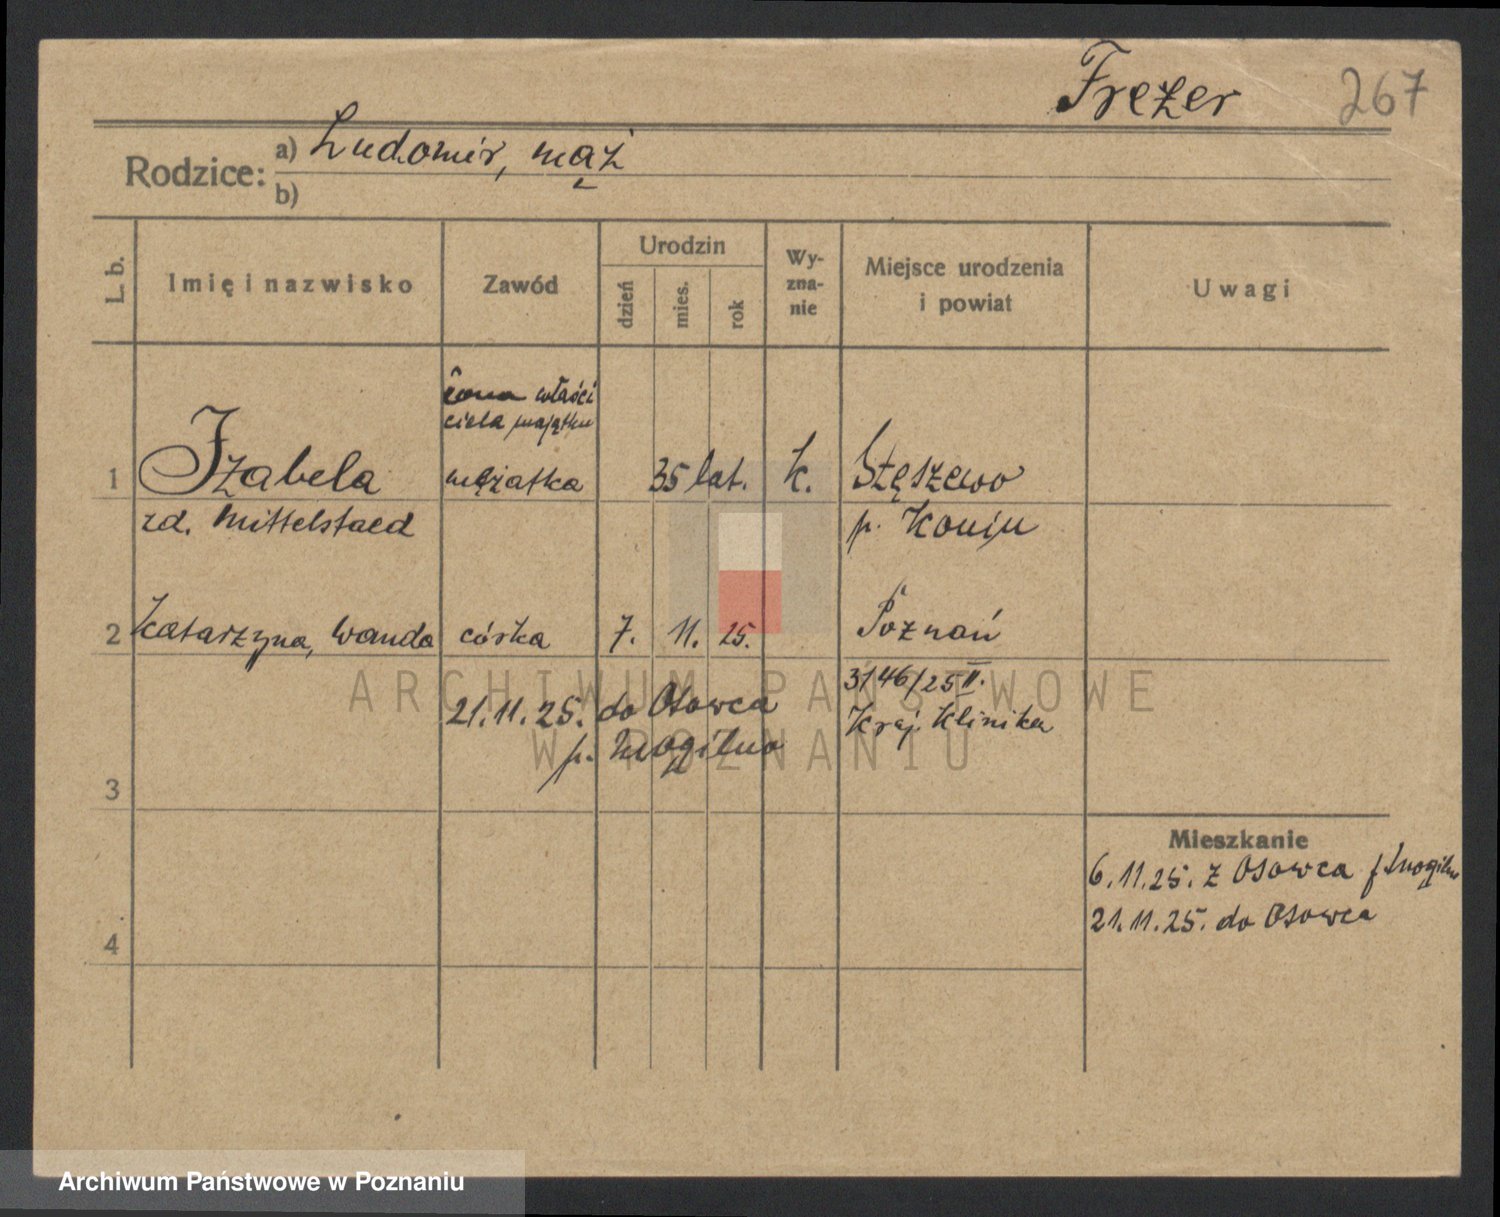 Frezer 267
Rodzice: a) Ludomir, mąż
b)
L. b.
Imię i nazwisko
Zawód
Urodzin
dzień
mies.
rok
Wy-
zna-
nie
Miejsce urodzenia
i powiat
Uwagi
żona właści
ciela majątku
1 Izabela mężatka 35 lat. k. Stęszewo
zd. Mittelstaed p. Konin
2 Katarzyna, Wanda córka 7. 11. 25. Poznań
3146/25 II.
21.11.25. do Osowca Kraj. Klinika
p. Mogilno
3
Mieszkanie
6.11.25. z Osowca p. Mogilno
21.11.25. do Osowca
4
ARCHIWUM PAŃSTWOWE
W POZNANIU
Archiwum Państwowe w Poznaniu